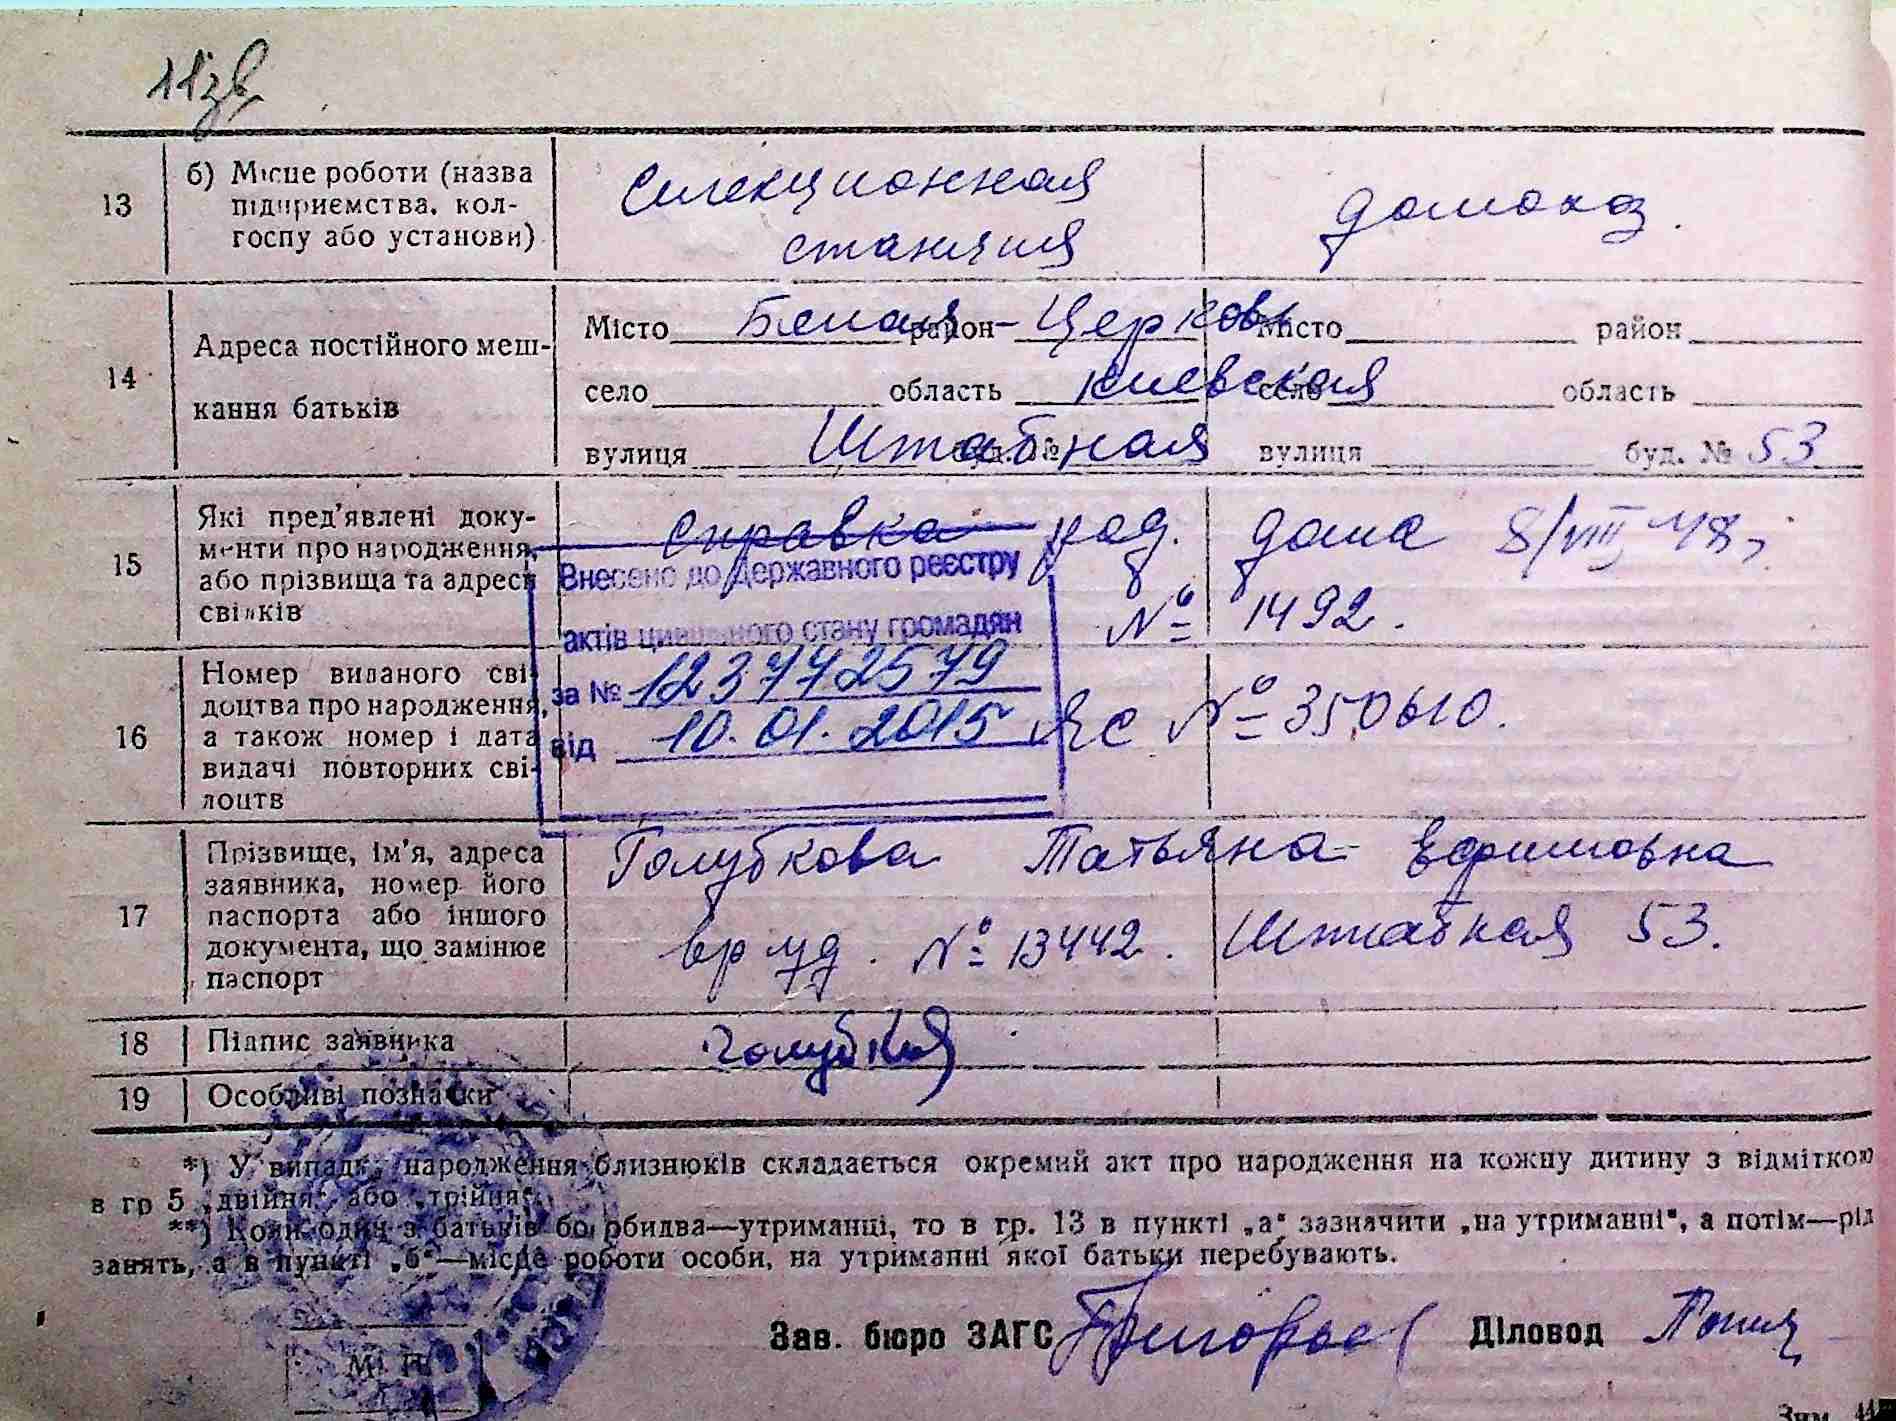 11зв
13 б) Місце роботи (назва підприємства, колгоспу або установи) Силекционная станция домохоз.
14 Адреса постійного мешкання батьків
Місто Белая район - Церковь Місто район
село область Киевская село область
вулиця Штабная буд. № вулиця буд. № 53
15 Які пред'явлені документи про народження, або прізвища та адреси свідків справка род. дома 8/VIII 48 г.
№ 1492.
Внесено до Державного реєстру
актів цивільного стану громадян
за № 123772579
від 10.01.2015
16 Номер виданого свідоцтва про народження, а також номер і дата видачі повторних свідоцтв ЯС № 350610.
17 Прізвище, ім'я, адреса заявника, номер його паспорта або іншого документа, що замінює паспорт Голубкова Татьяна Ефимовна
вр уд. № 13442. Штабная 53.
18 Підпис заявника Голубкова
19 Особливі позначки
*) У випадк. народження близнюків складається окремий акт про народження на кожну дитину з відміткою
в гр 5 „двійня“ або „трійня“.
**) Коли один з батьків бо обидва—утриманці, то в гр. 13 в пункті „а“ зазначити „на утриманні“, а потім—рід
занять, а в пункті „б“—місце роботи особи, на утриманні якої батьки перебувають.
Зав. бюро ЗАГС Діловод
М. П.